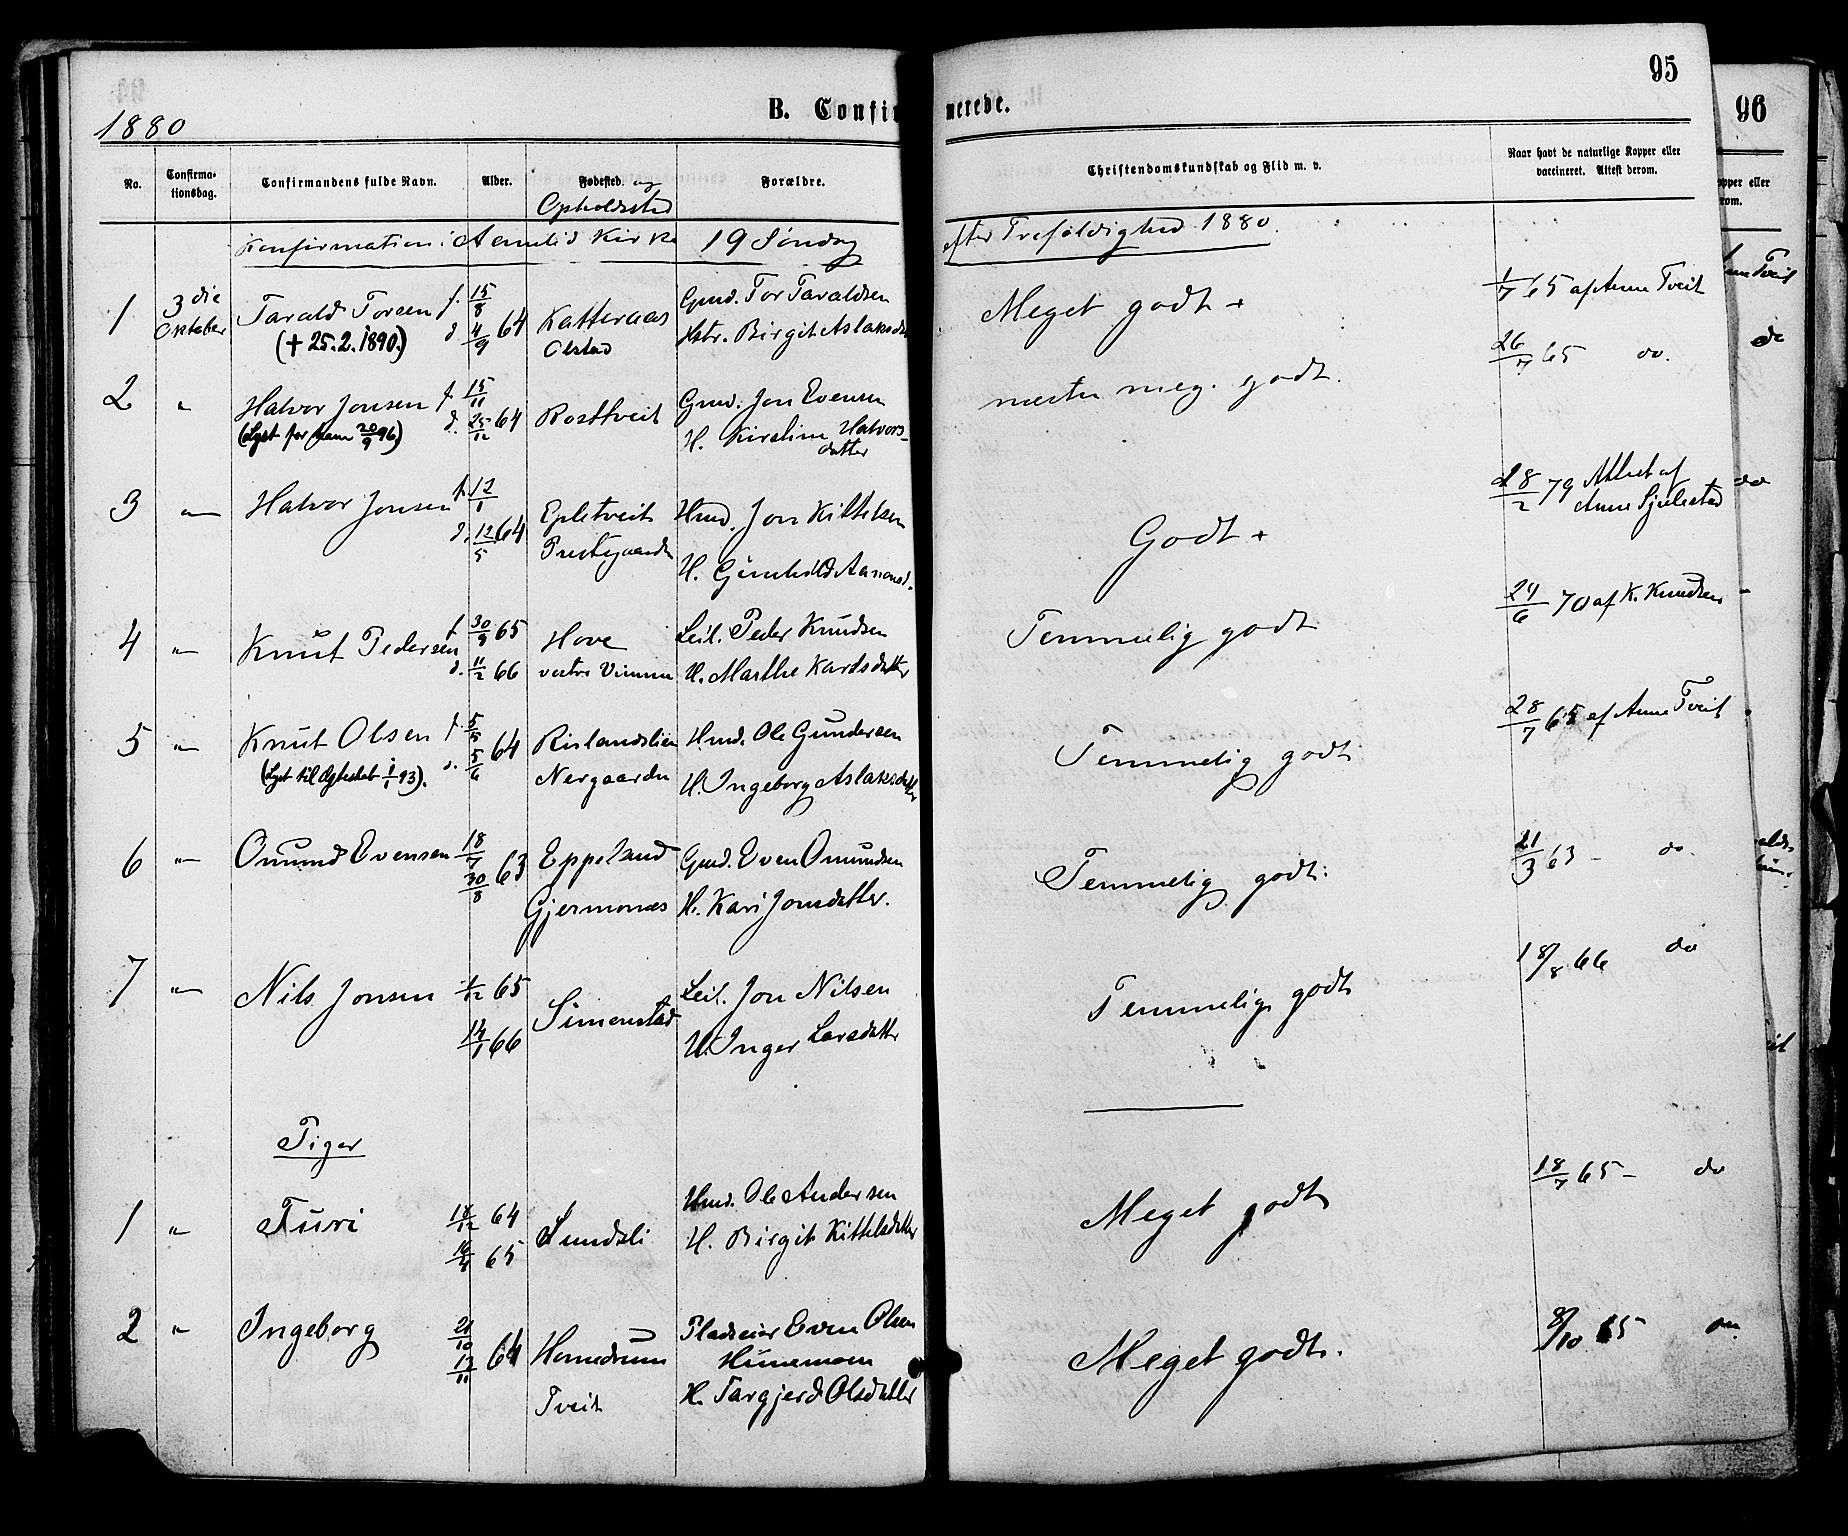 95
96
B. Confirmerede.
1880
No.
Confirmationsdag.
Confirmandens fulde Navn.
Alder.
Fødested. og Opholdssted
Forældre.
Christendomskundskab og Flid m. v.
Naar havt de naturlige Kopper eller vaccineret. Attest derom.
Konfirmation i Aamlid Kirke 19 Søndag efter Trefoldighed 1880.
1 3die Oktober Tarald Torsen f. 15/8 d. 4/9 64 Katteraas Olstad Gmd. Tor Taraldsen Hstr. Birgit Aslaksd Meget godt + 1/7 65 af Anne Tveit
(+ 25.2.1890.)
2 " Halvor Jonsen f. 15/11 d. 25/12 64 Rosttveit Gmd. Jon Evensen H. Kirstine Halvorsdatter næsten meg. godt. 26/7 65 do.
(Lyst for ham 20/9 96)
3 " Halvor Jonsen f. 12/1 d. 12/5 64 Epletveit Prestegaarden Hmd. Jon Kittelsen H. Gunhild Aanonsd. Godt + 28/2 79 Attest af Anne Sjulestad
4 " Knut Pedersen f. 30/9 65 d. 11/2 66 Hove vestre Vimme Leil. Peder Knudsen H. Marthe Karlsdatter Temmelig godt 24/6 70 af K. Knudsen
5 " Knut Olsen f. 5/5 d. 5/6 64 Rislandslien Nergaarden Hmd. Ole Gundersen H. Ingeborg Aslaksdatter Temmelig godt 28/7 65 af Anne Tveit
(Lyst til Egteskab 1/1 93).
6 " Omund Evensen 18/7 30/8 63 Eppeland Gjermonæs Gmd. Even Omundsen H. Kari Jonsdatter. Temmelig godt. 21/3 63 - do.
7 " Nils Jonsen 1/12 65 14/1 66 Simonstad Leil. Jon Nilsen H. Inger Larsdatter Temmelig godt 18/8 66 do
Piger
1 " Turi 18/12 64 65 Lundsli Hmd. Ole Andersen H. Birgit Kittelsdatter Meget godt 18/7 65 - do
2 " Ingeborg 21/10 13/11 64 Homdrum Tveit Pladseier Even Olsen Hunemoen H. Targjerd Olsdatter Meget godt. 8/10 65 do